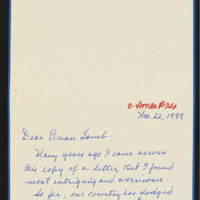 C-Amer Pres
Nov. 22, 1999
Dear Brian Lamb:
Many years ago I came across
this copy of a letter that I found
most intriguing and worrisome.
So far, our country has dodged